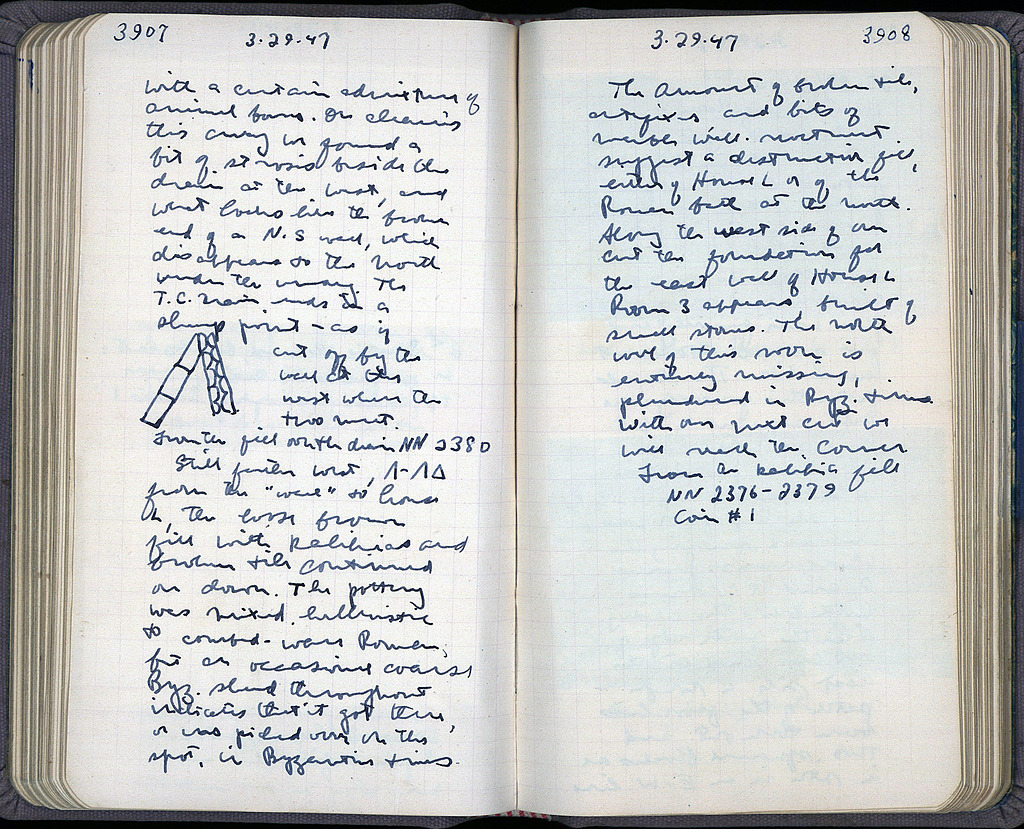 3907
3.29.47
with a certain admixture of
animal bones. On cleaning
this away we found a
bit of strosis beside the
drain at the west, and
what looks like the broken
end of a N.S wall, which
disappears to the north
under the
T.C. drain ends in a
sharp point - as if
cut off by the
wall at the
west where the
two meet.
From the fill with drain NN 2380
Still further west, Λ-ΛΔ
from the "wall" to house
L, the loose brown
fill with kalibia and
broken tile continued
on down. The pottery
was mixed hellenistic
to combed-ware Roman,
but an occasional coarse
Byz. sherd throughout
indicates that it got there,
or was picked over on this
spot, in Byzantine times.
3.29.47
3908
The amount of broken tile,
antefixes and bits of
marble wall revetment
suggest a destruction fill,
either of House L or of the
Roman bath at the north.
Along the west side of our
cut the foundation for
the east wall of House L
Room 3 appears built of
small stones. The north
wall of this room is
entirely missing,
plundered in Byz. times
With our next cut we
will reach the corner
From the kalibia fill
NN 2376-2379
Coin #1